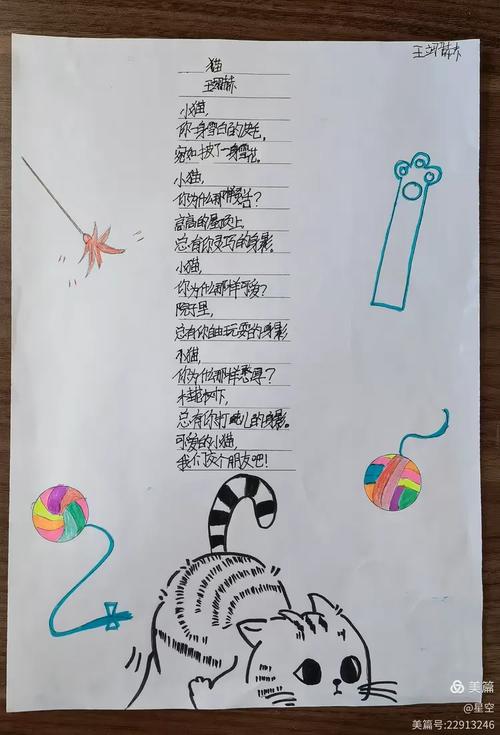 猫
小猫,
你一身雪白的皮毛,
宛如披了一身雪花。
小猫,
你为什么那样灵活?
高高的屋顶上,
总有你灵巧的身影。
小猫,
你为什么那样可爱?
院子里,
总有你自由玩耍的身影
小猫,
你为什么那样憨厚?
桂花树下,
总有你打盹儿的身影。
可爱的小猫,
我们交个朋友吧!
美篇
@星空
美篇号:22913246